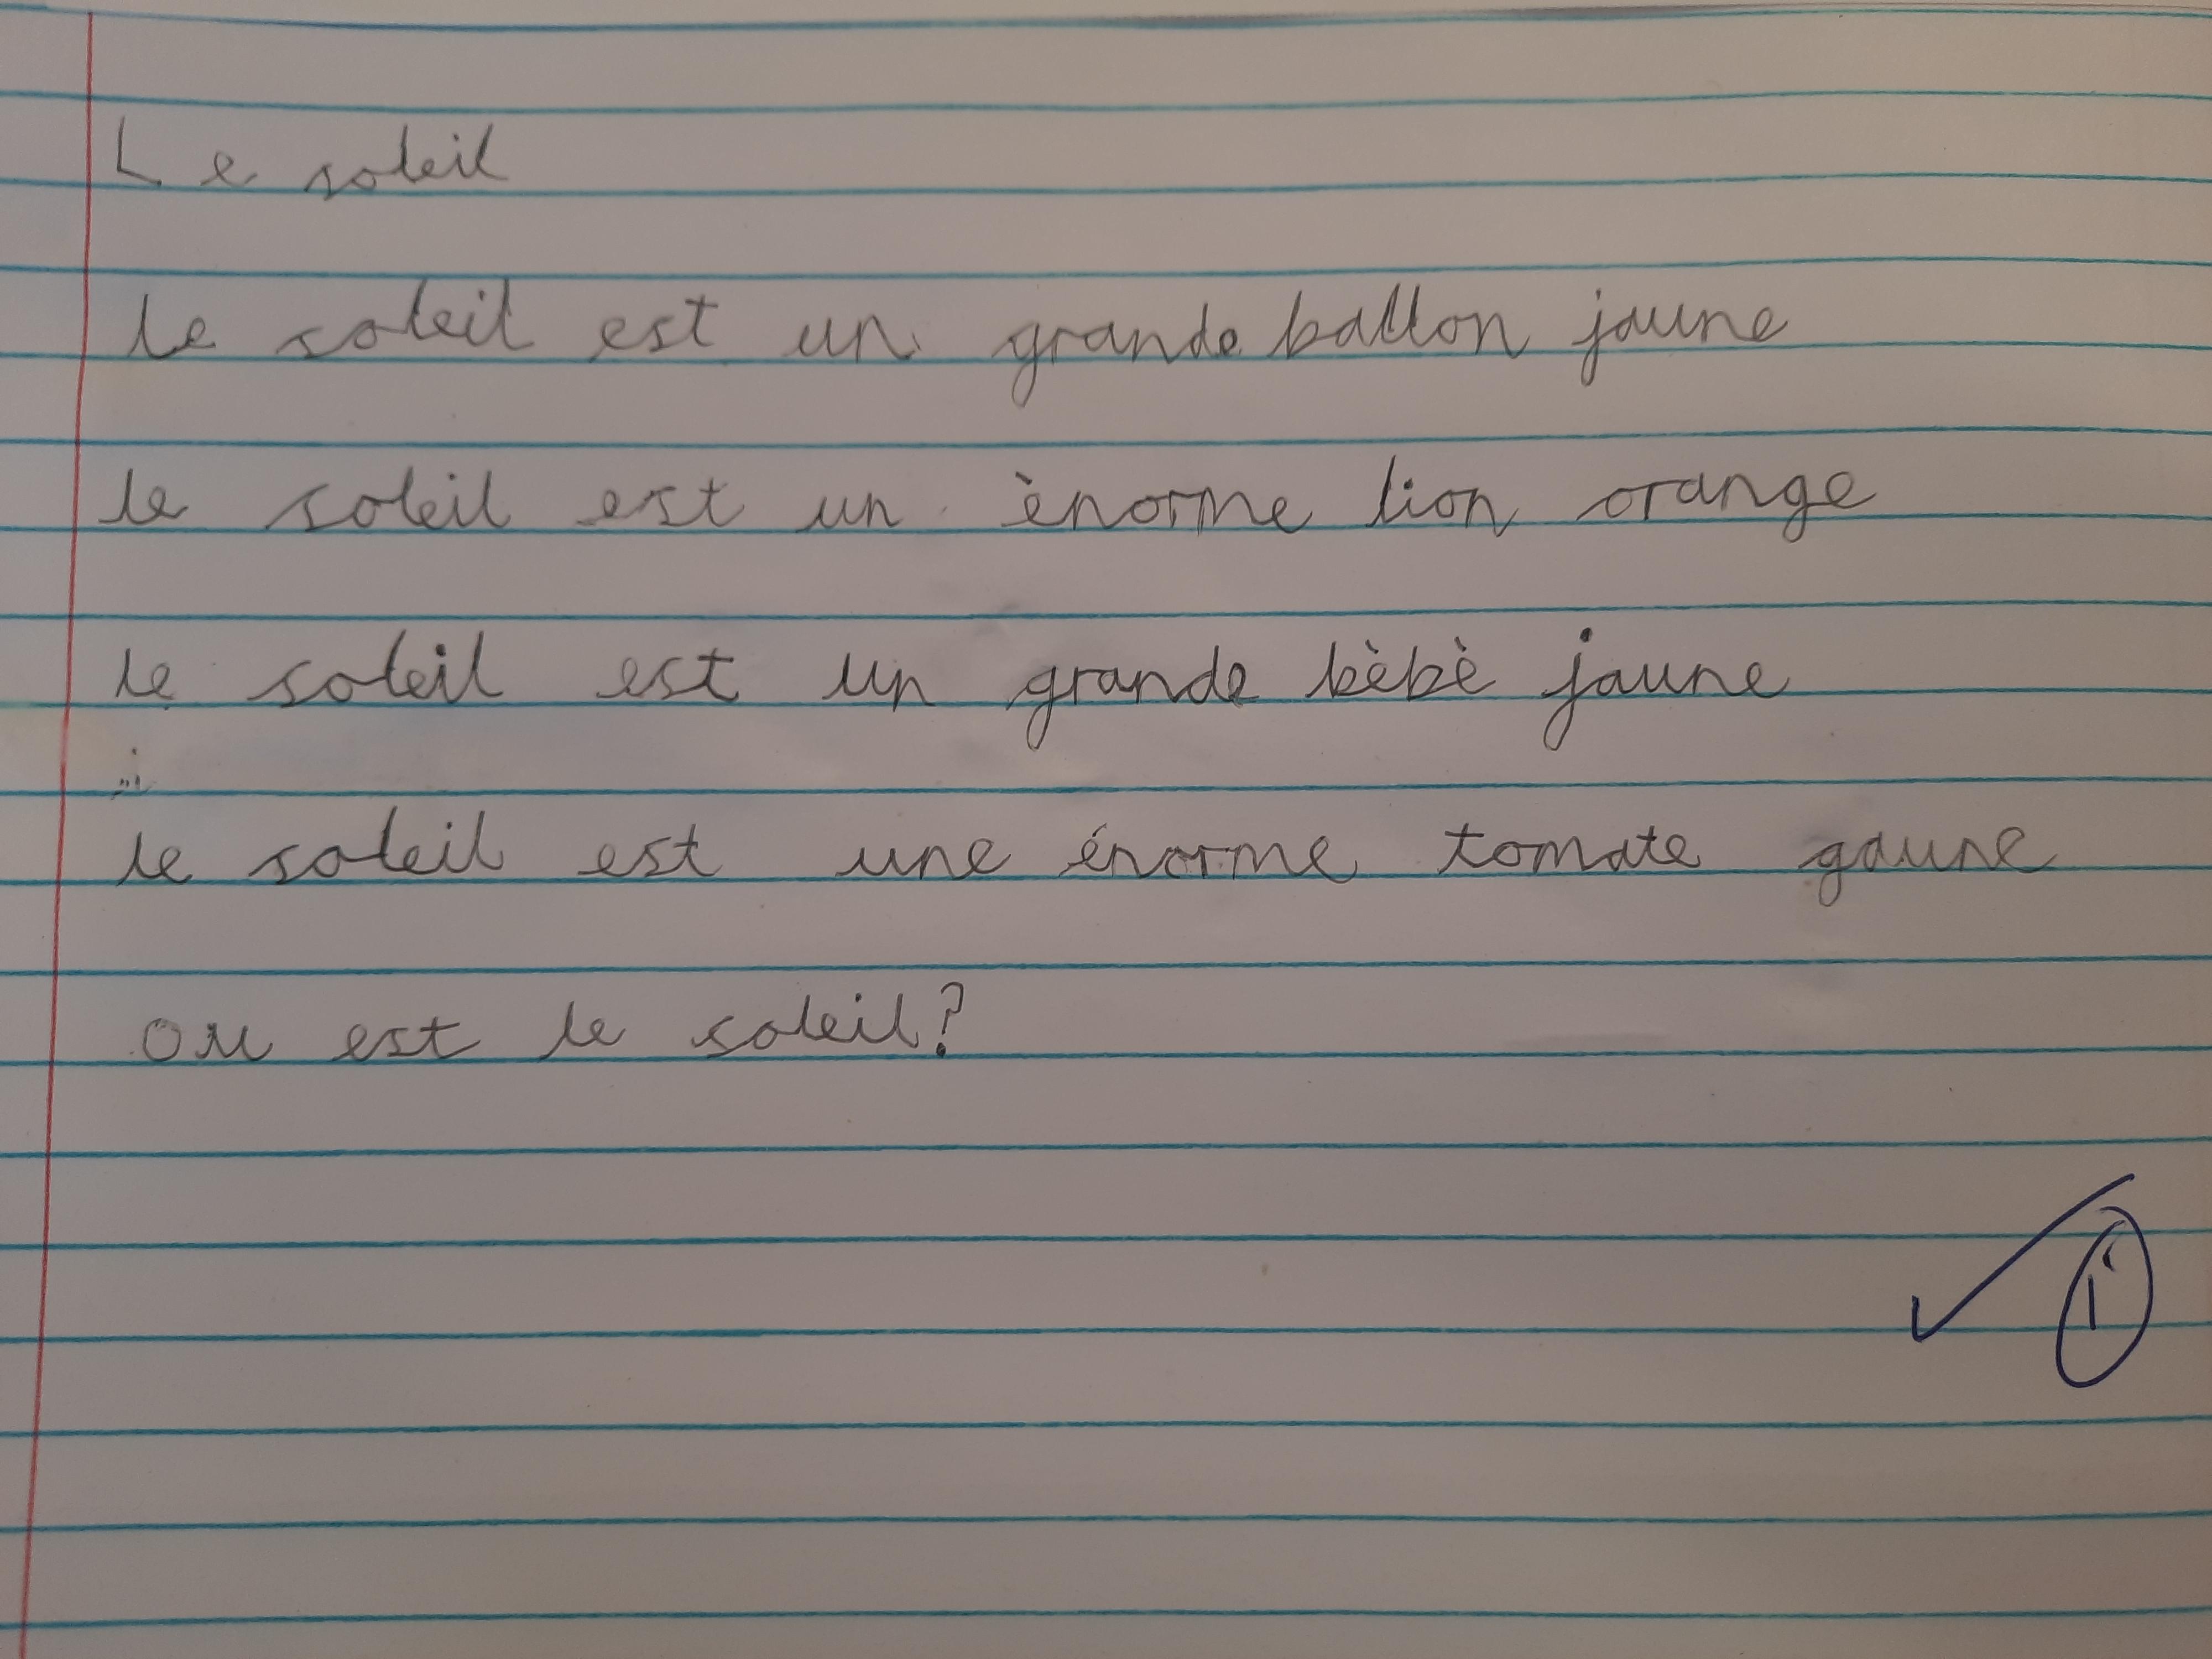 Le soleil
le soleil est un grande ballon jaune
le soleil est un ènorme lion orange
le soleil est un grande bèbè jaune
le soleil est une énorme tomate gaune
ou est le soleil?